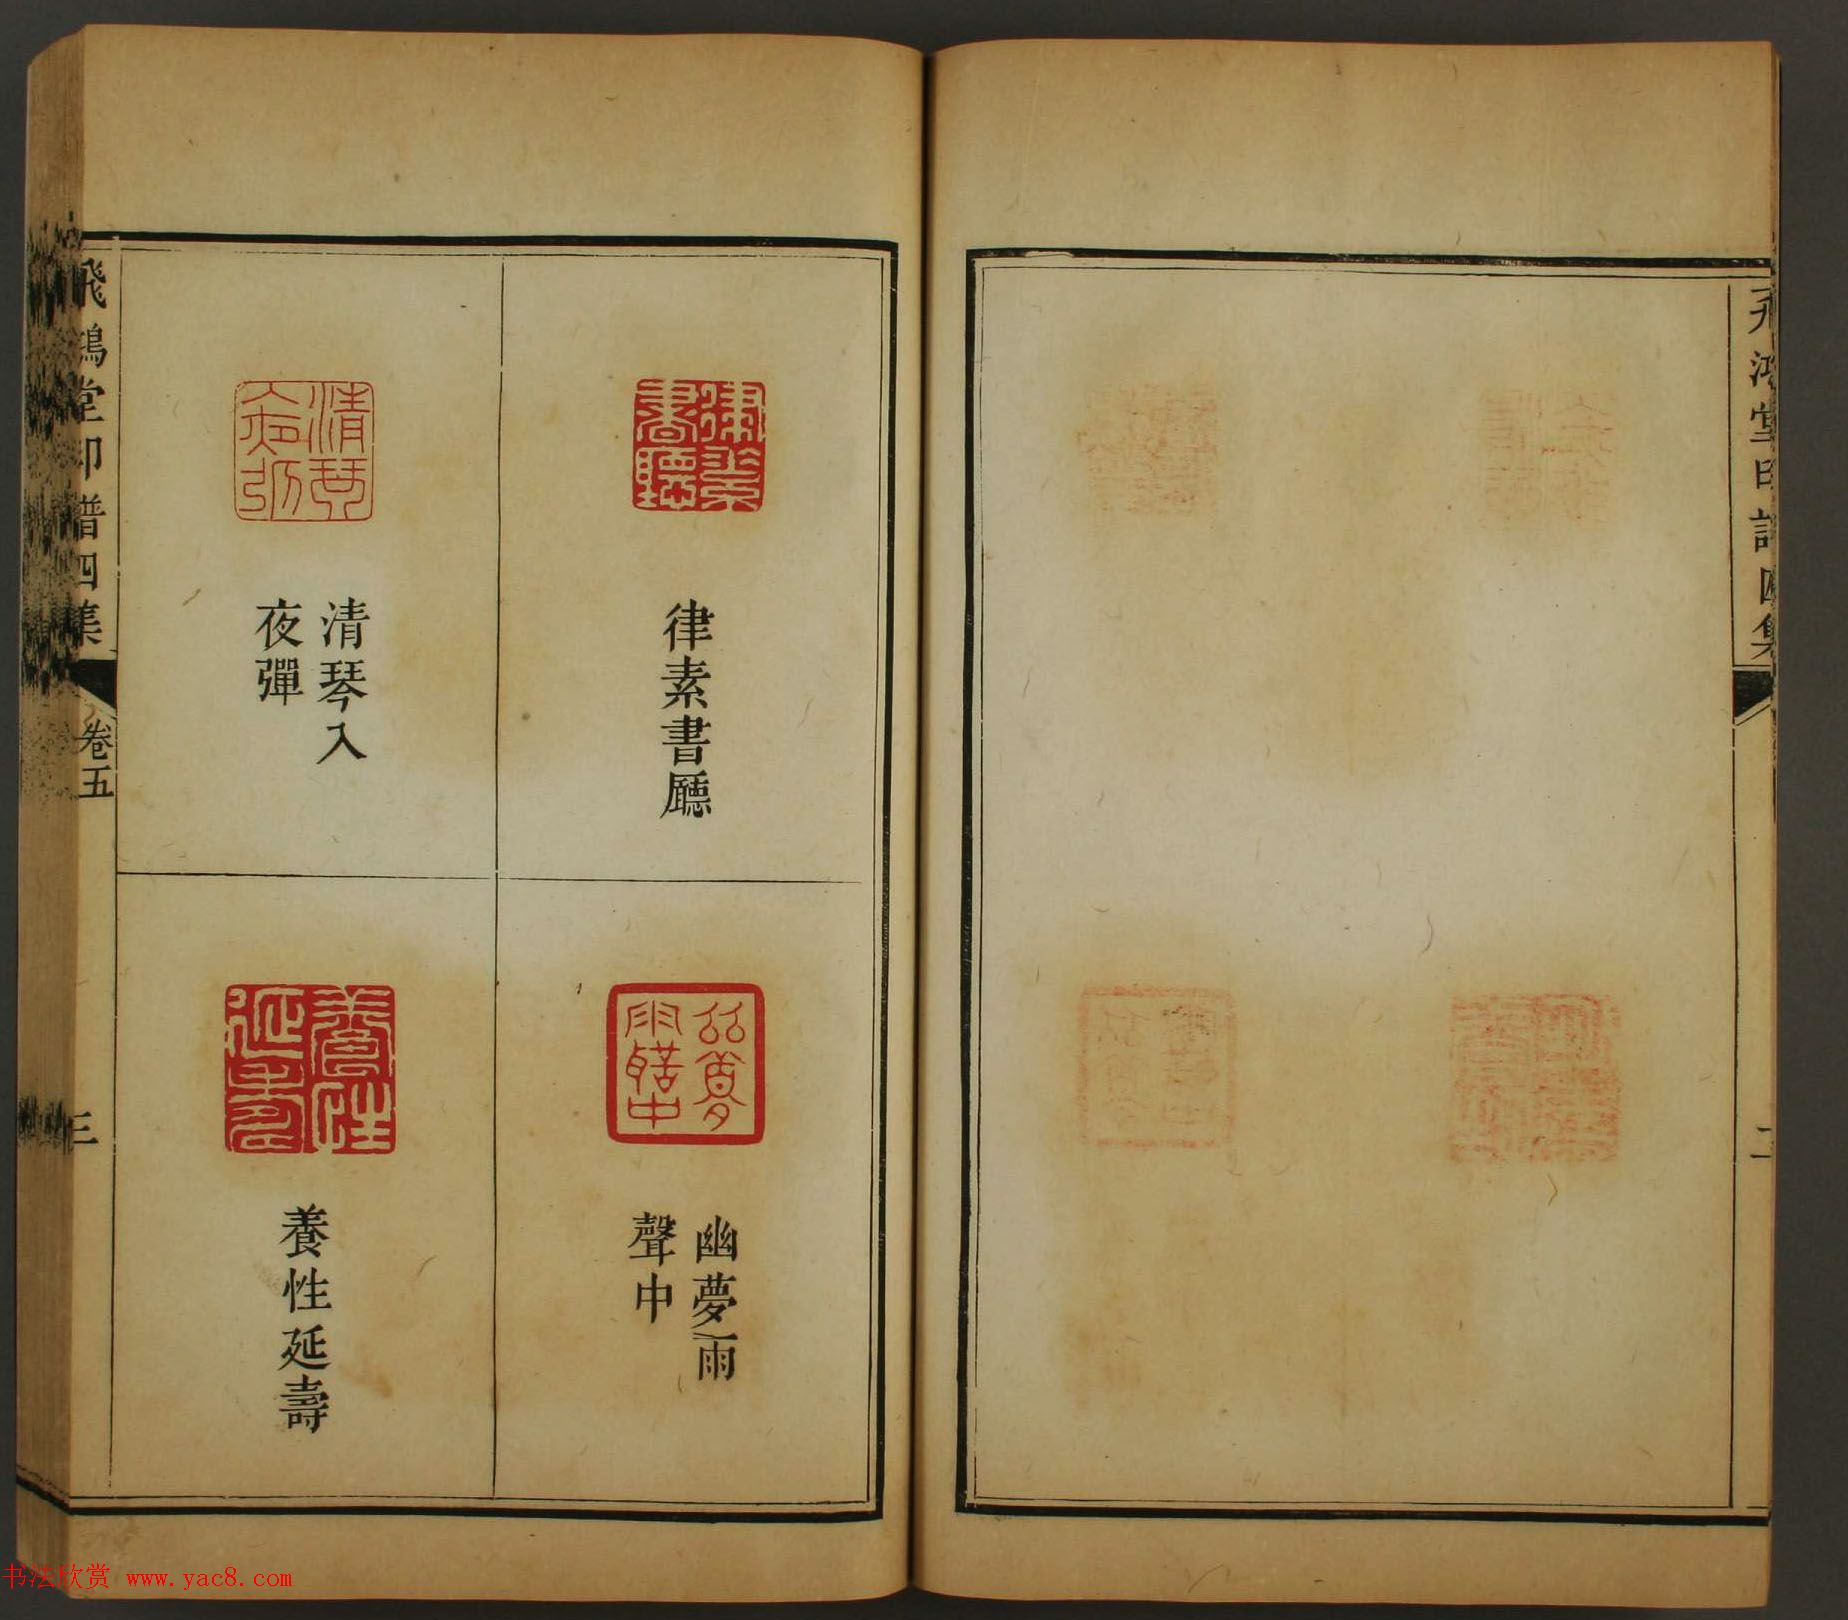 飛鴻堂印譜四集
二
律素書廳
清琴入
夜彈
幽夢雨
聲中
養性延壽
飛鴻堂印譜四集
卷五
三
书法欣赏 www.yac8.com